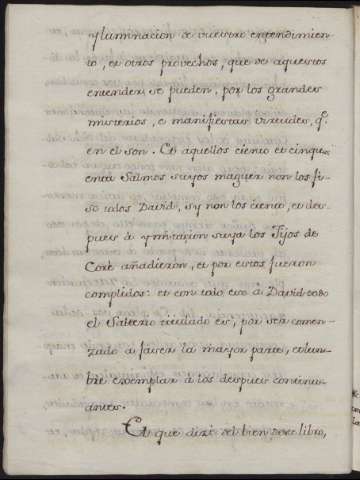 yluminacion de vuestro entendimien-
to, et otros provechos, que de aquestos
entender se pueden, por los grandes
misterios, e manifiestas virtudes, q.^e
en el son. Et aquellos ciento et cinqu-
enta Salmos suyos maguer non los fi-
so todos David, sy non los ciento, et des-
pues à ymitazion suya los Fijos de
Coré añadieron, et por estos fueron
complidos: et con todo eso à David todo
el Salterio titulado es, por ser comen-
zado a facer la mayor parte, et
bre exemplar à los despues continu-
antes.
Et que dixe del bien deste libro,